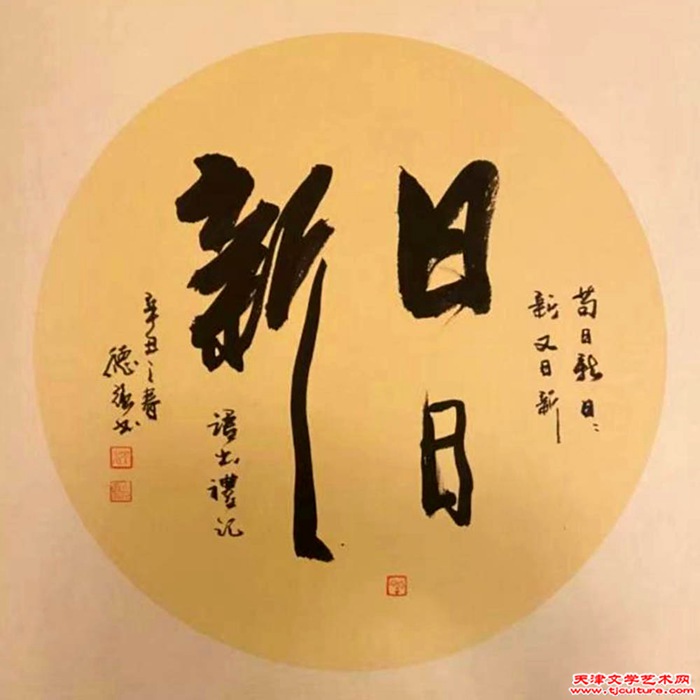 苟日新日〻
新又日新
日日
新
语出禮记
辛丑之春
德强书
天津文学艺术网
www.tjculture.com